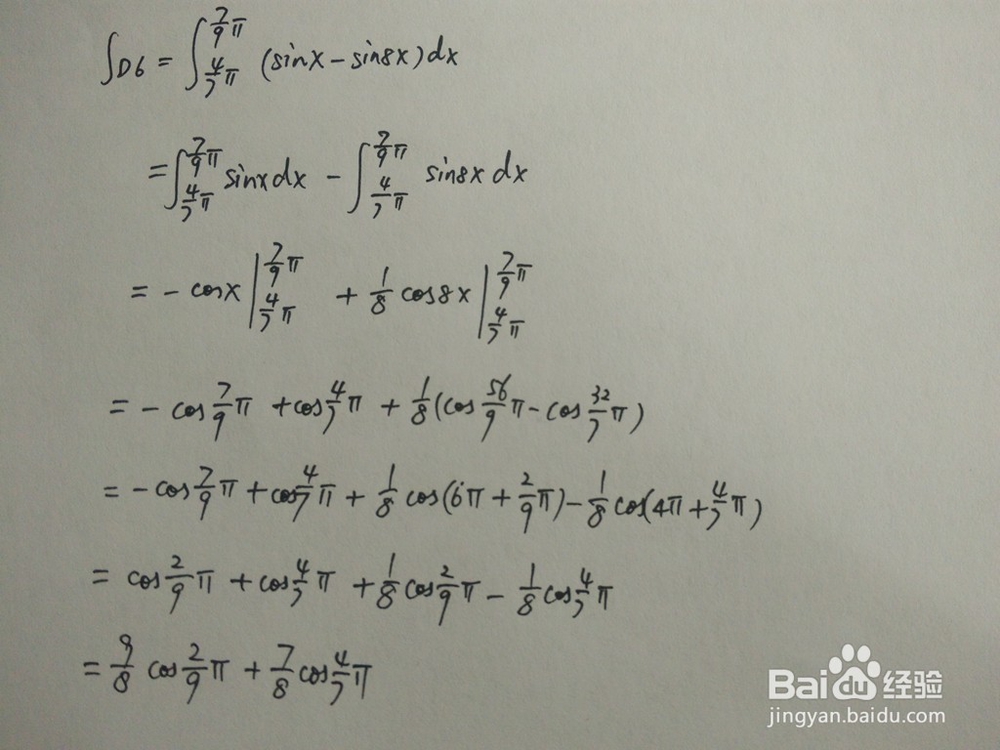 ∫D6 = ∫_{4/7 π}^{7/9 π} (sinx - sin8x) dx
= ∫_{4/7 π}^{7/9 π} sinx dx - ∫_{4/7 π}^{7/9 π} sin8x dx
= - cosx |_{4/7 π}^{7/9 π} + 1/8 cos8x |_{4/7 π}^{7/9 π}
= - cos 7/9 π + cos 4/7 π + 1/8 (cos 56/9 π - cos 32/7 π)
= - cos 7/9 π + cos 4/7 π + 1/8 cos(6π + 2/9 π) - 1/8 cos(4π + 4/7 π)
= cos 2/9 π + cos 4/7 π + 1/8 cos 2/9 π - 1/8 cos 4/7 π
= 9/8 cos 2/9 π + 7/8 cos 4/7 π
Baidu 经验
jingyan.baidu.com